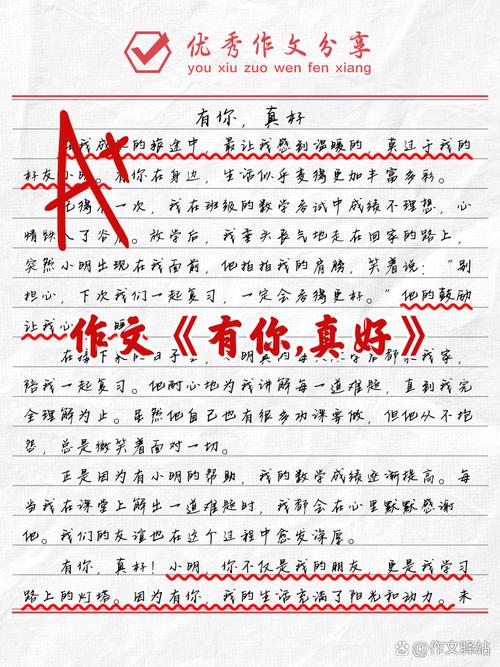 优秀作文分享
you xiu zuo wen fen xiang
有你，真好
A+
的旅途中，最让我感到温暖的，莫过于我的
好友小明。有你在身边，生活似乎变得更加丰富多彩。
一次，我在班级的数学考试中成绩不理想，心
情跌入了谷底。放学后，我垂头丧气地走在回家的路上，
突然小明出现在我面前，他拍拍我的肩膀，笑着说：“别
担心，下次我们一起复习，一定会考得更好。”他的鼓励
让我心
作文《有你,真好》
陪我一起复习。他耐心地为我讲解每一道难题，直到我完
全理解为止。虽然他自己也有很多功课要做，但他从不抱
怨，总是微笑着面对一切。
正是因为有小明的帮助，我的数学成绩逐渐提高。每
当我在课堂上解出一道难题时，我都会在心里默默感谢
他。我们的友谊也在这个过程中愈发深厚。
有你，真好！小明，你不仅是我的朋友，更是我学习
路上的灯塔。因为有你，我的生活充满了阳光和动力。未
@作文驿站